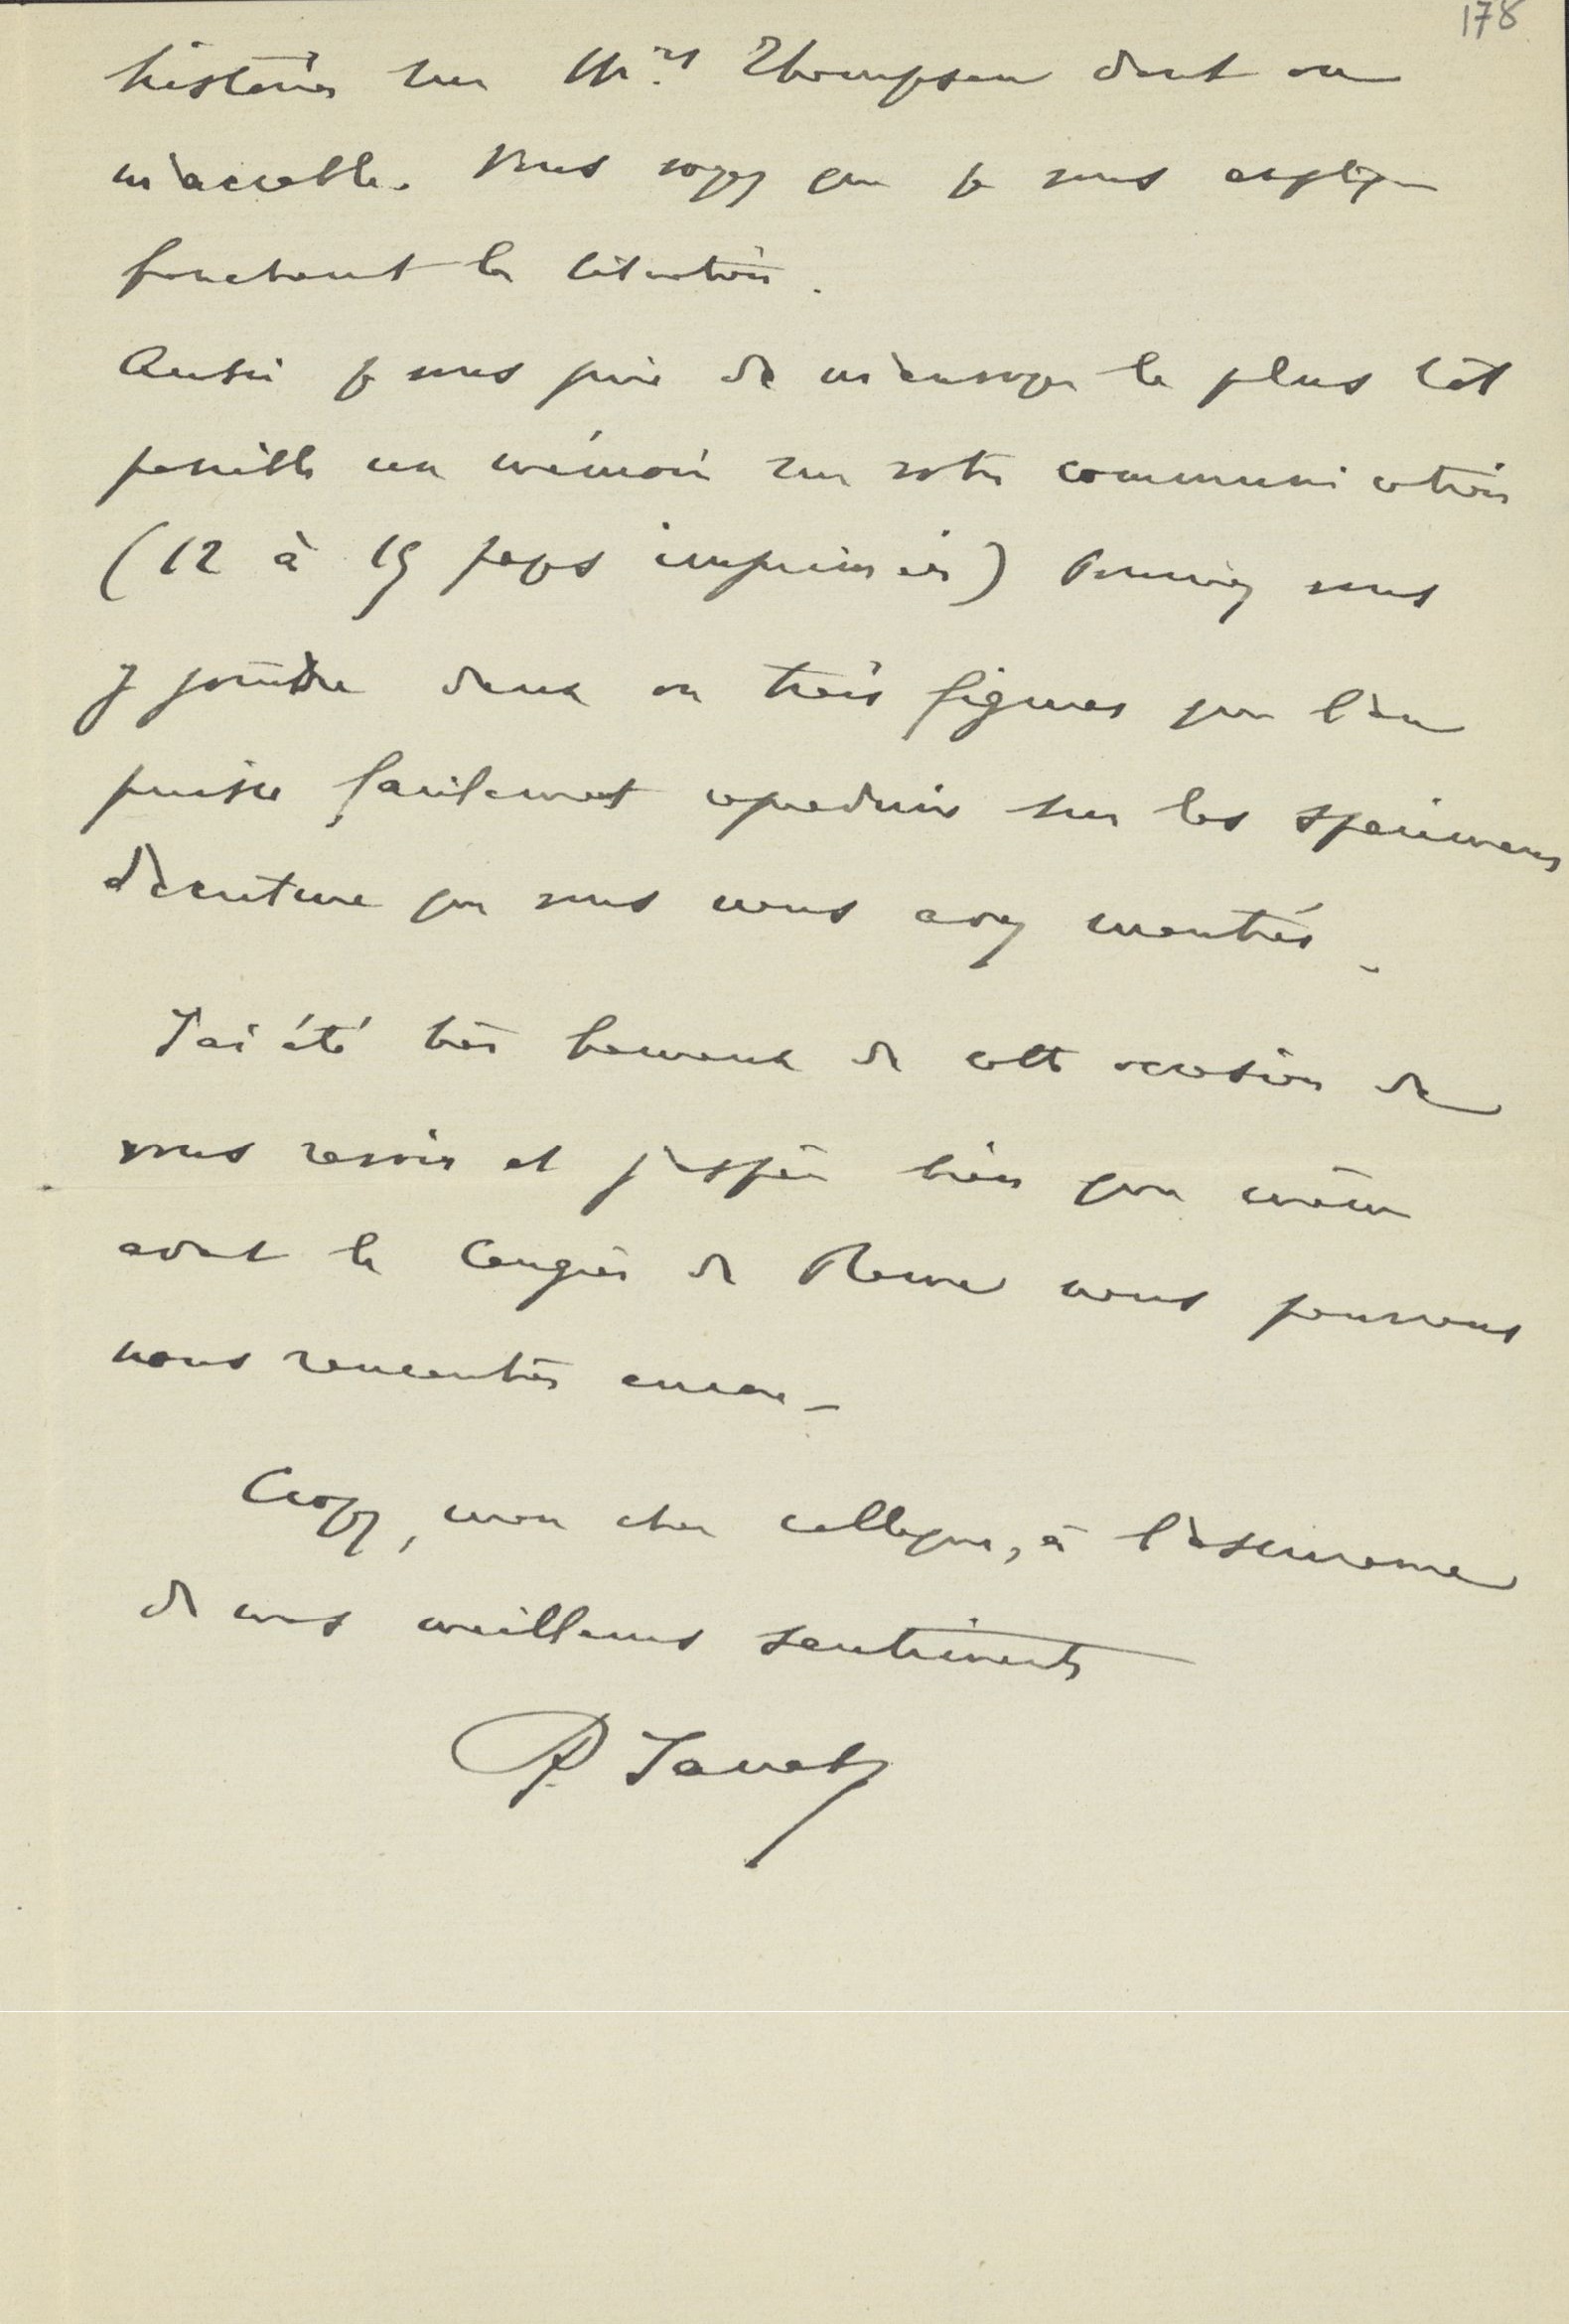 178
histoires sur Mrs Thompson dont on
m'accable. Vous voyez que je vous explique
franchement la situation.
Aussi je vous prie de m'envoyer le plus tôt
possible un mémoire sur votre communication
(12 à 15 pages imprimées) Pourriez vous
y joindre deux ou trois figures que l'on
puisse facilement reproduire sur les specimens
d'écriture que vous nous avez montrés.
J'ai été très heureux de cette occasion de
vous revoir et j'espère bien que même
avant le Congrès de Rome nous pourrons
nous rencontrer encore -
Croyez, mon cher collègue, à l'assurance
de mes meilleurs sentiments
P Janet